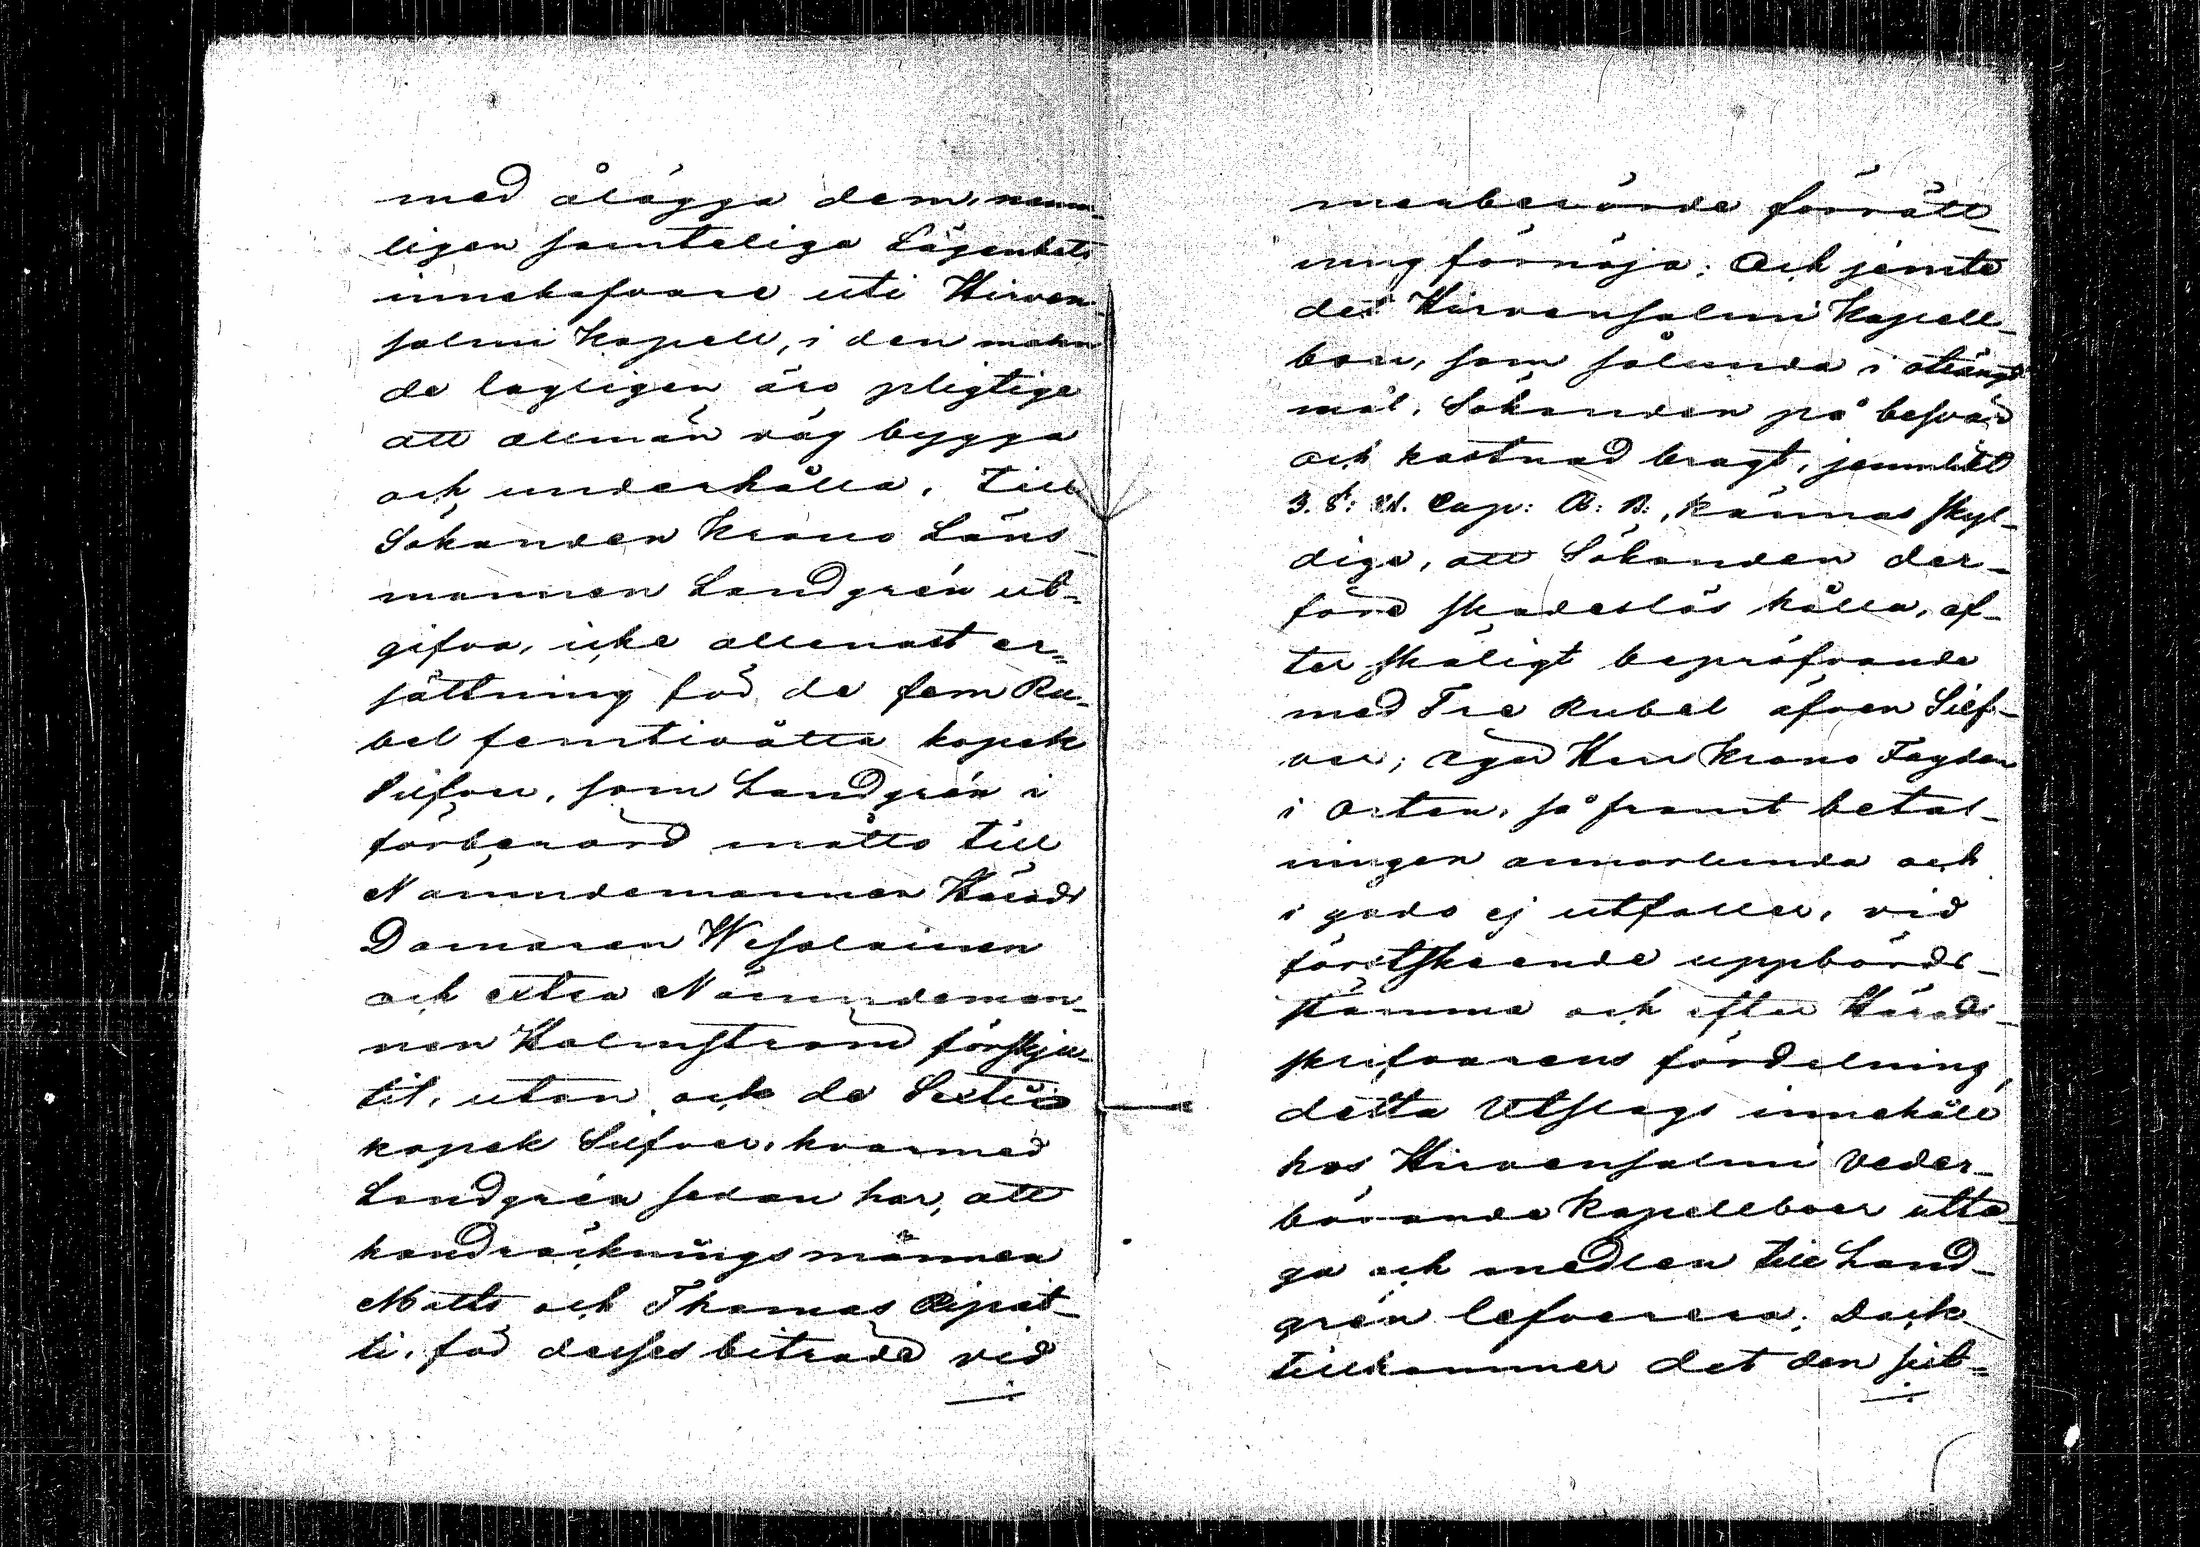 med ålägga dem, nem¬
ligen samteliga Lägenhets
innehafvare uti Hirven¬
salmi Kapell, i den mohn
de lagligen äro pligtige
att allmän väg bygga
och underhålla, till
Sökanden Krono Läns¬
mannen Landgrén ut¬
gifva, icke allenast er¬
sättning för de fem Ru¬
bel femtioåtta kopek
Silfver, som Landgrén i
förberörd måtto till
Nämndemannen Härads
Domaren Wesalainen
och extra Nämndeman¬
nen Holmström förskju¬
tit, utan ock de Sextio
kopek Silfver, hvarmed
Landgrén sedan har, att
handräckningsmännen
Matts och Thomas Ripat¬
ti, för desses biträde vid
merberörde förrätt¬
ning förnöja; Och jemte
det Hirvensalmi Kapell¬
boer, som sålunda i oträngdt
mål, Sökanden på besvär
och kostnad bragt, jemlikt
3. §: 21. Cap: R: B:, kännas skyl¬
dige, att Sökanden der¬
före skadeslös hålla, ef¬
ter skäligt bepröfvande
med Tre Rubel äfven Silf¬
ver; eger Herr Krono Fogden
i Orten, så framt betal¬
ningen annorlunda och
i godo ej utfaller, vid
förstskeende uppbörds¬
stämma och efter Härads¬
skrifvarens fördelning,
detta Utslags innehåll
hos Hirvensalmi veder¬
börande Kapellboer utta¬
ga och medlen till Land¬
grén lefverera; Dock
tillkommer det den sist¬